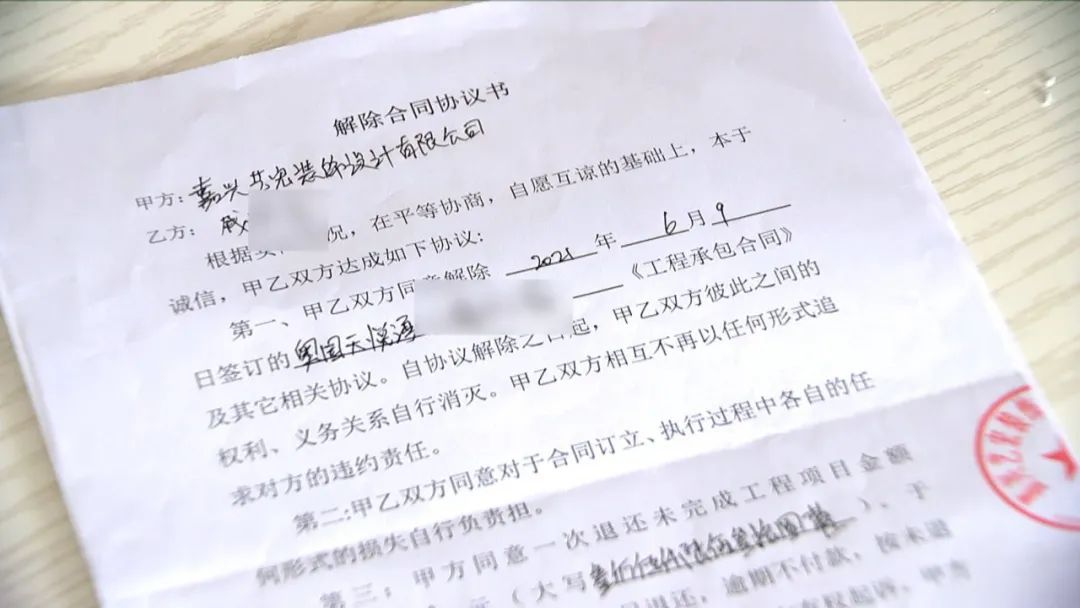 解除合同协议书
甲方：嘉兴共宏装饰设计有限公司
乙方：戚
根据 况，在平等协商，自愿互谅的基础上，本于
诚信，甲乙双方达成如下协议：
第一、甲乙双方同意解除 2021 年 6 月 9
日签订的 奥园天悦湾 《工程承包合同》
及其它相关协议。自协议解除之日起，甲乙双方彼此之间的
权利、义务关系自行消灭。甲乙双方相互不再以任何形式追
求对方的违约责任。
第二：甲乙双方同意对于合同订立、执行过程中各自的任
何形式的损失自行负责担。
第三：甲方同意一次退还未完成工程项目金额
元（大写 ）。于
退还，逾期不付款，按未退
权起诉，甲方